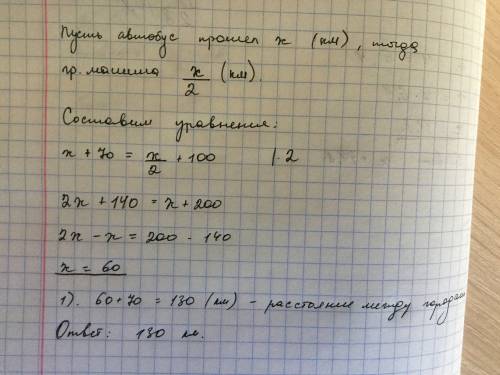 Пусть автобус прошел x (км), тогда
гр. машина x/2 (км).
Составим уравнение:
x + 70 = x/2 + 100 | · 2
2x + 140 = x + 200
2x - x = 200 - 140
x = 60
1). 60 + 70 = 130 (км) - расстояние между городами
Ответ: 130 км.